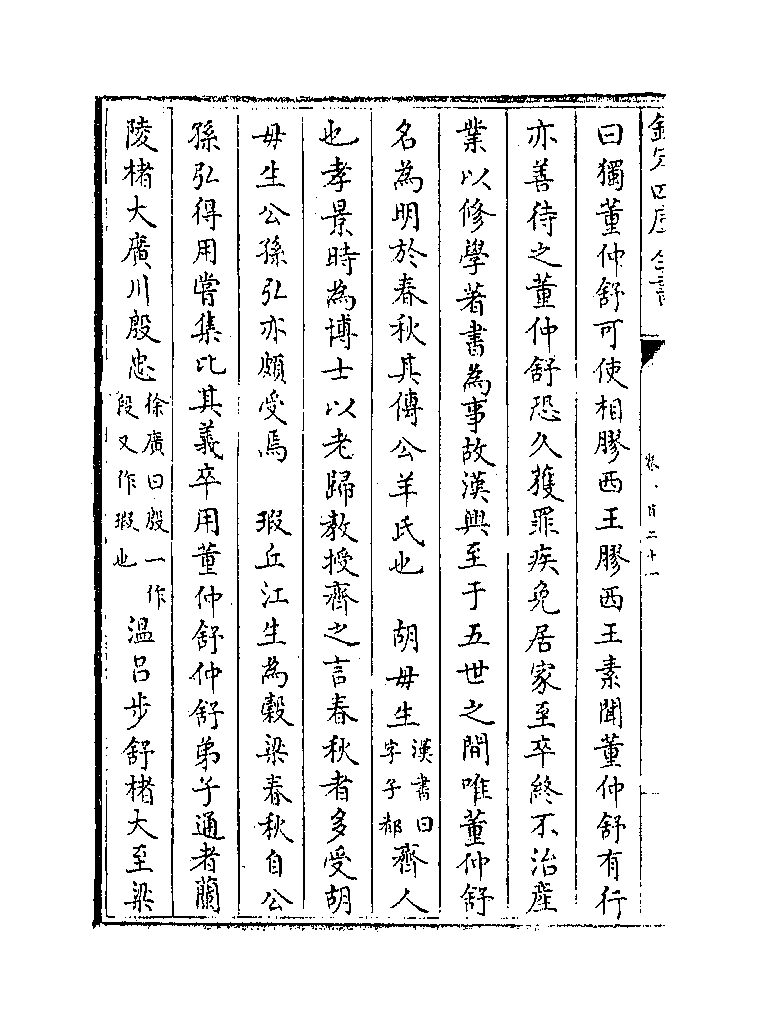 欽定四庫全書
卷一百二十一
曰獨董仲舒可使相膠西王膠西王素聞董仲舒有行
亦善待之董仲舒恐久獲罪疾免居家至卒終不治產
業以修學著書為事故漢興至于五世之間唯董仲舒
名為明於春秋其傳公羊氏也　胡毋生漢書曰字子都齊人
也孝景時為博士以老歸教授齊之言春秋者多受胡
毋生公孫弘亦頗受焉　瑕丘江生為穀梁春秋自公
孫弘得用嘗集比其義卒用董仲舒仲舒弟子通者蘭
陵楮大廣川殷忠徐廣曰殷一作段又作瑕也溫呂步舒楮大至梁